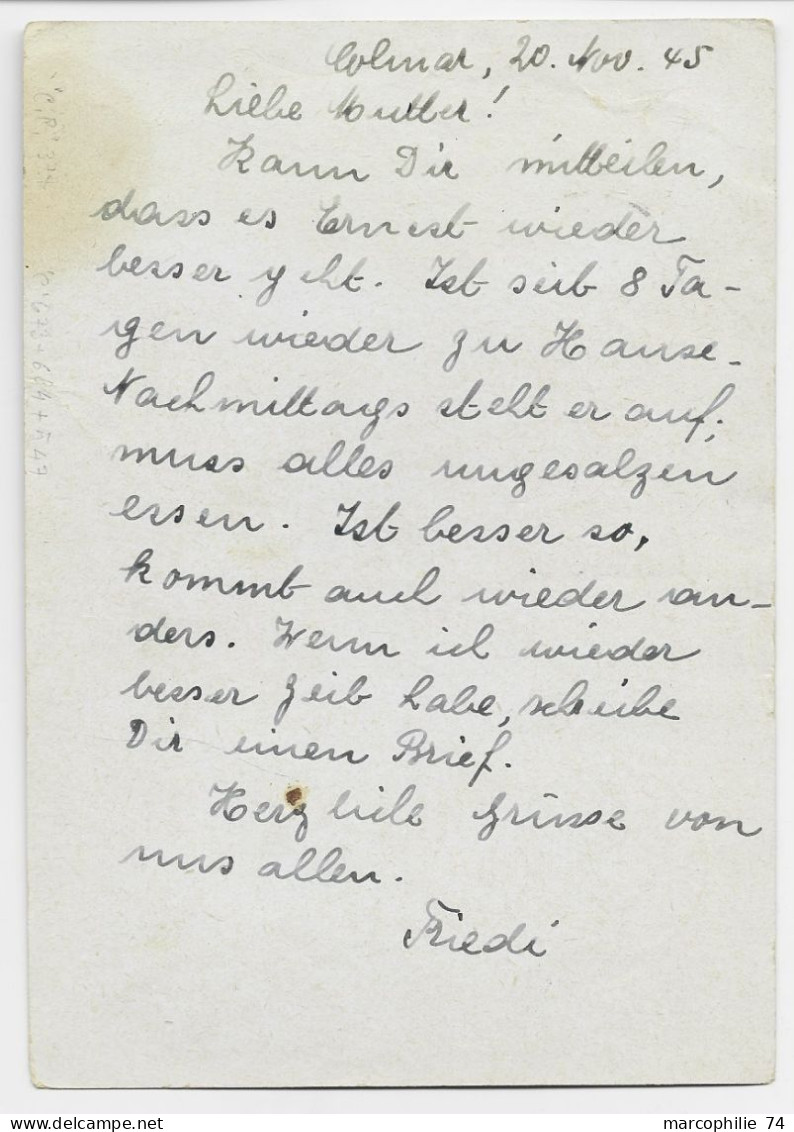 Colmar, 20. Nov. 45
Liebe Mutter!
Kann Dir mitteilen,
dass es Ernest wieder
besser geht. Ist seit 8 Ta-
gen wieder zu Hause.
Nachmittags steht er auf,
muss alles ungesalzen
essen. Ist besser so,
kommt auch wieder an-
ders. Wenn ich wieder
besser Zeit habe, schreibe
Dir einen Brief.
Herzliche Grüsse von
uns allen.
Friedi
marcophilie 74